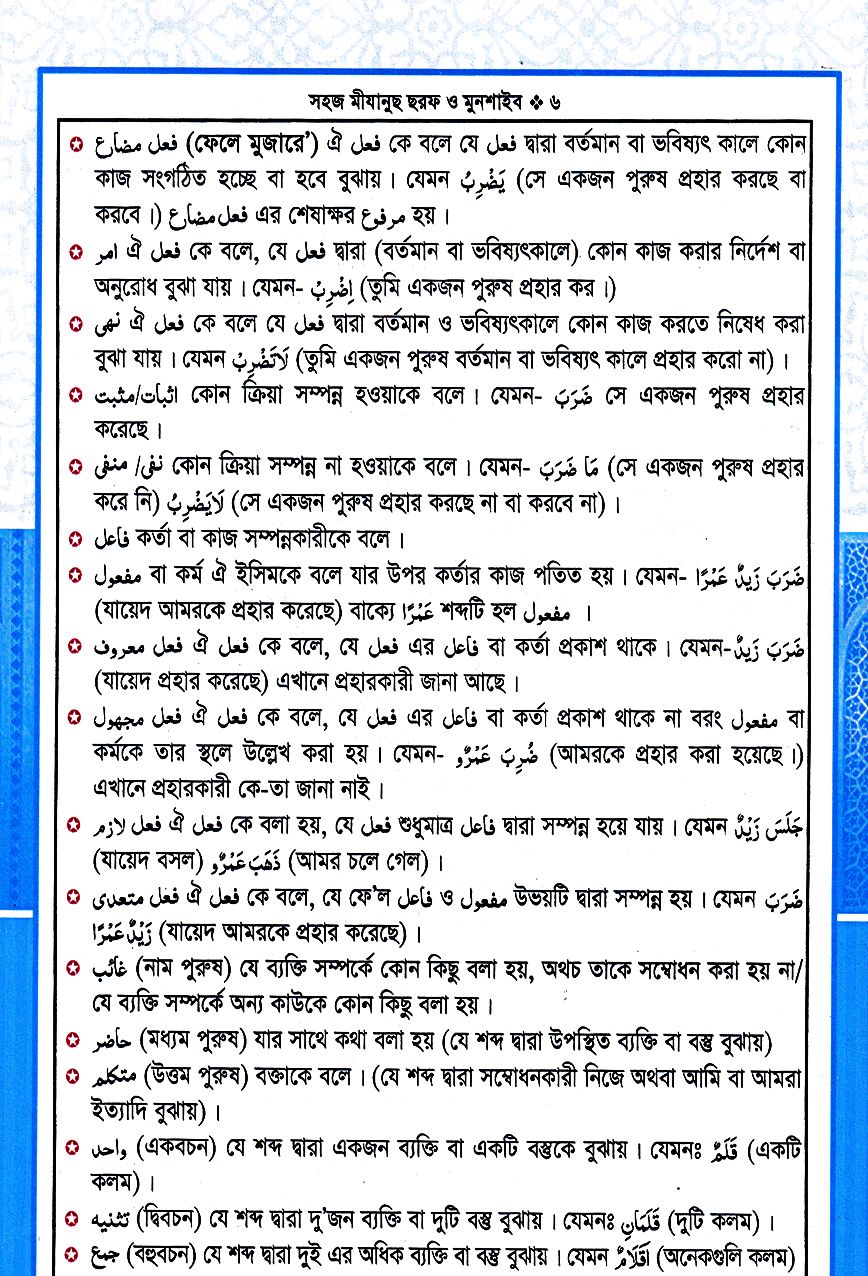 সহজ মীযানুছ ছরফ ও মুনশাইব ❖ ৬
✪ فعل مضارع (ফেলে মুজারে’) ঐ فعل কে বলে যে فعل দ্বারা বর্তমান বা ভবিষ্যৎ কালে কোন
কাজ সংগঠিত হচ্ছে বা হবে বুঝায়। যেমন يَضْرِبُ (সে একজন পুরুষ প্রহার করছে বা
করবে।) فعل مضارع এর শেষাক্ষর مرفوع হয়।
✪ امر ঐ فعل কে বলে, যে فعل দ্বারা (বর্তমান বা ভবিষ্যৎকালে) কোন কাজ করার নির্দেশ বা
অনুরোধ বুঝা যায়। যেমন- اِضْرِبْ (তুমি একজন পুরুষ প্রহার কর।)
✪ نهى ঐ فعل কে বলে যে فعل দ্বারা বর্তমান ও ভবিষ্যৎকালে কোন কাজ করতে নিষেধ করা
বুঝা যায়। যেমন لَاتَضْرِبْ (তুমি একজন পুরুষ বর্তমান বা ভবিষ্যৎ কালে প্রহার করো না)।
✪ اثبات/مثبت কোন ক্রিয়া সম্পন্ন হওয়াকে বলে। যেমন- ضَرَبَ সে একজন পুরুষ প্রহার
করেছে।
✪ نفى/ منفى কোন ক্রিয়া সম্পন্ন না হওয়াকে বলে। যেমন- مَا ضَرَبَ (সে একজন পুরুষ প্রহার
করে নি) لَايَضْرِبُ (সে একজন পুরুষ প্রহার করছে না বা করবে না)।
✪ فاعل কর্তা বা কাজ সম্পন্নকারীকে বলে।
✪ مفعول বা কর্ম ঐ ইসিমকে বলে যার উপর কর্তার কাজ পতিত হয়। যেমন- ضَرَبَ زَيْدٌ عَمْرًا
(যায়েদ আমরকে প্রহার করেছে) বাক্যে عَمْرًا শব্দটি হল مفعول ।
✪ فعل معروف ঐ فعل কে বলে, যে فعل এর فاعل বা কর্তা প্রকাশ থাকে। যেমন-ضَرَبَ زَيْدٌ
(যায়েদ প্রহার করেছে) এখানে প্রহারকারী জানা আছে।
✪ فعل مجهول ঐ فعل কে বলে, যে فعل এর فاعل বা কর্তা প্রকাশ থাকে না বরং مفعول বা
কর্মকে তার স্থলে উল্লেখ করা হয়। যেমন- ضُرِبَ عَمْرٌو (আমরকে প্রহার করা হয়েছে।)
এখানে প্রহারকারী কে-তা জানা নাই।
✪ فعل لازم ঐ فعل কে বলা হয়, যে فعل শুধুমাত্র فاعل দ্বারা সম্পন্ন হয়ে যায়। যেমন جَلَسَ زَيْدٌ
(যায়েদ বসল) ذَهَبَ عَمْرٌو (আমর চলে গেল)।
✪ فعل متعدى ঐ فعل কে বলে, যে ফে’ল فاعل ও مفعول উভয়টি দ্বারা সম্পন্ন হয়। যেমন ضَرَبَ
زَيْدٌ عَمْرًا (যায়েদ আমরকে প্রহার করেছে)।
✪ غائب (নাম পুরুষ) যে ব্যক্তি সম্পর্কে কোন কিছু বলা হয়, অথচ তাকে সম্বোধন করা হয় না/
যে ব্যক্তি সম্পর্কে অন্য কাউকে কোন কিছু বলা হয়।
✪ حاضر (মধ্যম পুরুষ) যার সাথে কথা বলা হয় (যে শব্দ দ্বারা উপস্থিত ব্যক্তি বা বস্তু বুঝায়)
✪ متكلم (উত্তম পুরুষ) বক্তাকে বলে। (যে শব্দ দ্বারা সম্বোধনকারী নিজে অথবা আমি বা আমরা
ইত্যাদি বুঝায়)।
✪ واحد (একবচন) যে শব্দ দ্বারা একজন ব্যক্তি বা একটি বস্তুকে বুঝায়। যেমনঃ قَلَمٌ (একটি
কলম)।
✪ تثنيه (দ্বিবচন) যে শব্দ দ্বারা দু’জন ব্যক্তি বা দুটি বস্তু বুঝায়। যেমনঃ قَلَمَانِ (দুটি কলম)।
✪ جمع (বহুবচন) যে শব্দ দ্বারা দুই এর অধিক ব্যক্তি বা বস্তু বুঝায়। যেমন اَقْلَامٌ (অনেকগুলি কলম)